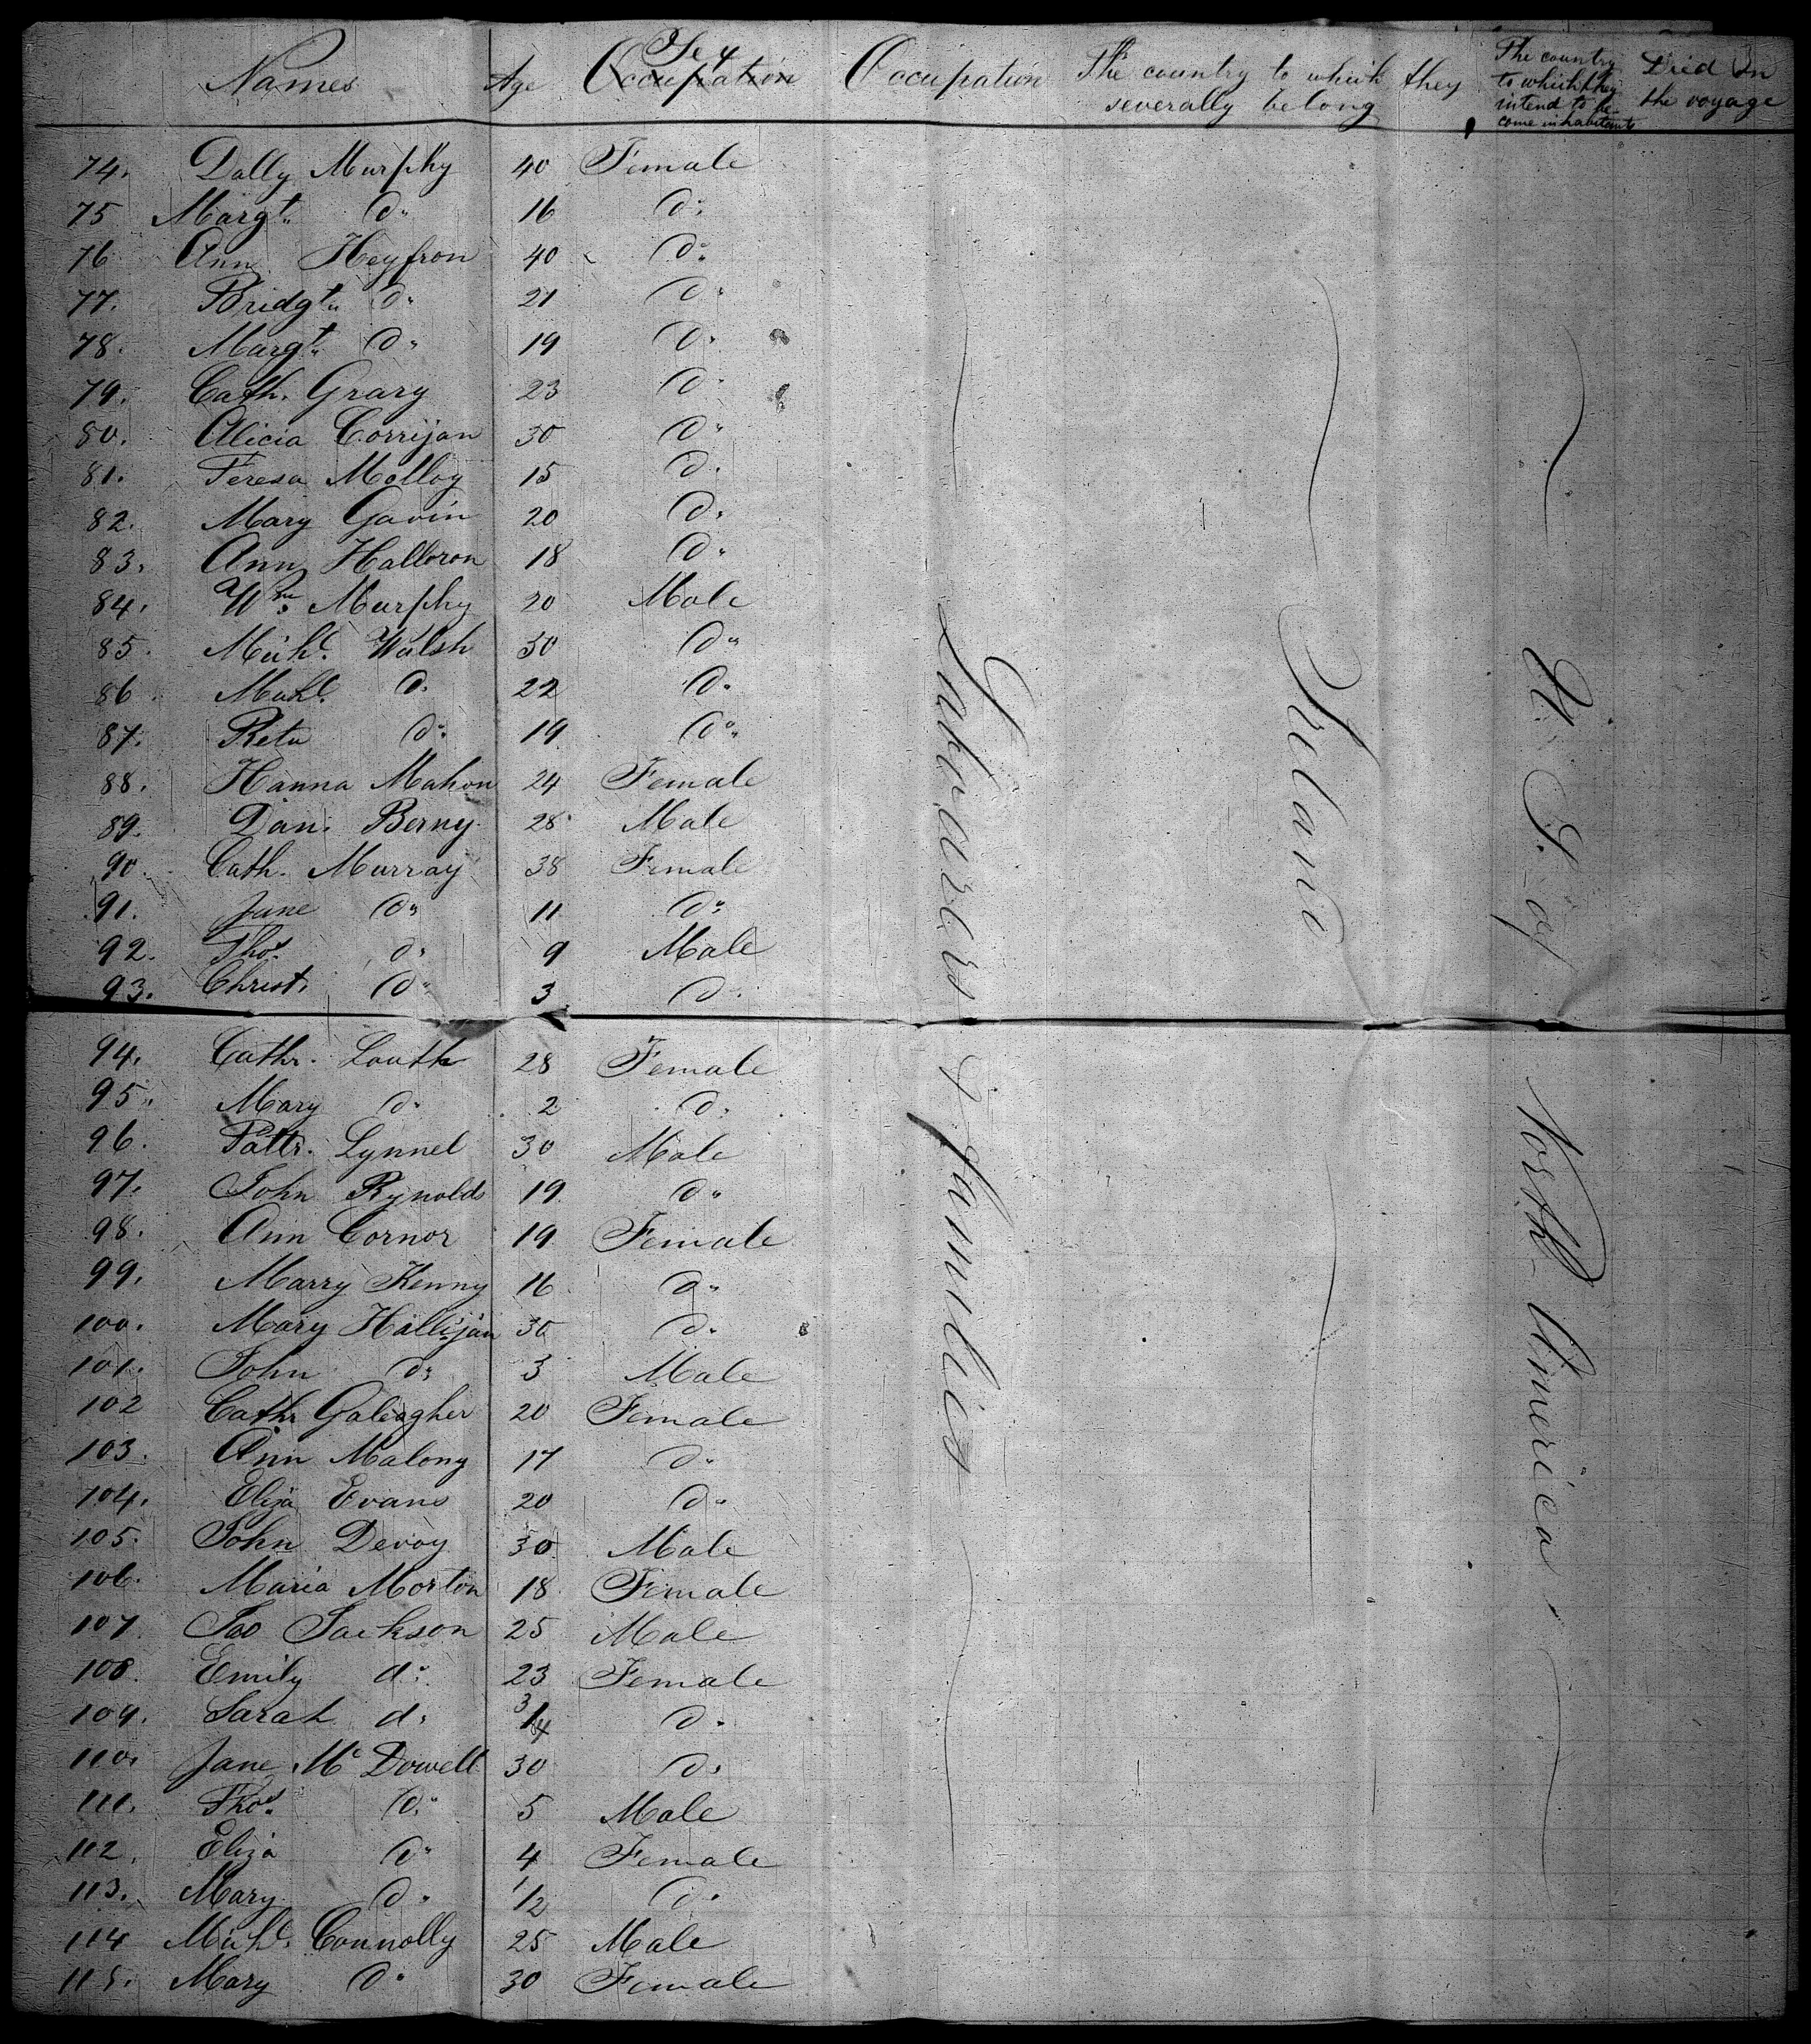 Names Age Sex Occupation Occupation The country to which they severally belong The country to which they intend to become inhabitants Died On the voyage
74. Dally Murphy 40 Female
75 Margt. Do. 16 Do.
76 Ann Heyfron 40 Do.
77. Bridgt. Do. 21 Do.
78. Margt. Do. 19 Do.
79. Cath. Grary 23 Do.
80. Alicia Corrijan 30 Do.
81. Teresa Molloy 15 Do.
82. Mary Gavin 20 Do.
83. Ann Halloron 18 Do.
84. Wm. Murphy 20 Male
85. Michl. Walsh 30 Do.
86. Do. 22 Do.
87. Do. 19 Do.
88. Hanna Mahon 24 Female
89. Dan. Berny 28 Male
90. Cath. Murray 38 Female
91. Jane Do. 11 Do.
92. Thos. Do. 9 Male
93. Christ. Do. 3 Do.
94. Cathr. Louth 28 Female
95. Mary Do. 2 Do.
96. Pattr. Lynnel 30 Male
97. John Rynolds 19 Do.
98. Ann Cornor 19 Female
99. Marry Kenny 16 Do.
100. Mary Hallijan 30 Do.
101. John Do. 3 Male
102 Cathr Galeagher 20 Female
103. Ann Malony 17 Do.
104. Eliza Evans 20 Do.
105. John Devoy 30 Male
106. Maria Morton 18 Female
107. Jas Jackson 25 Male
108. Emily do. 23 Female
109. Sarah do. 3/4 Do.
110. Jane McDowell 30 Do.
111. Thos. Do. 5 Male
112. Eliza Do. 4 Female
113. Mary Do. 1/2 Do.
114 Michl. Connolly 25 Male
115. Mary Do. 30 Female
Labourers & families
Ireland
U. S. of North America